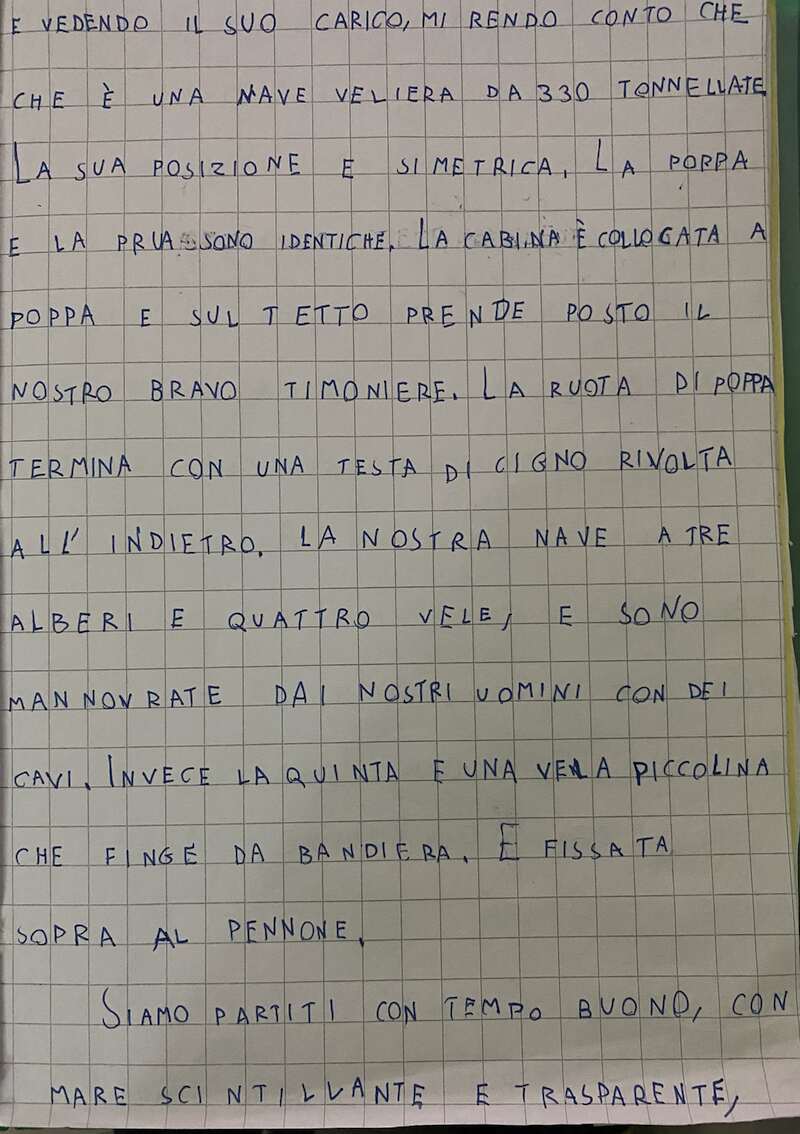 E VEDENDO IL SUO CARICO, MI RENDO CONTO CHE
CHE È UNA NAVE VELIERA DA 330 TONNELLATE
LA SUA POSIZIONE E SIMETRICA. LA POPPA
E LA PRUA SONO IDENTICHE. LA CABINA È COLLOCATA A
POPPA E SUL TETTO PRENDE POSTO IL
NOSTRO BRAVO TIMONIERE. LA RUOTA DI POPPA
TERMINA CON UNA TESTA DI CIGNO RIVOLTA
ALL' INDIETRO. LA NOSTRA NAVE A TRE
ALBERI E QUATTRO VELE, E SONO
MANNOVRATE DAI NOSTRI UOMINI CON DEI
CAVI. INVECE LA QUINTA E UNA VELA PICCOLINA
CHE FINGE DA BANDIERA. E FISSATA
SOPRA AL PENNONE.
SIAMO PARTITI CON TEMPO BUONO, CON
MARE SCINTILLANTE E TRASPARENTE,